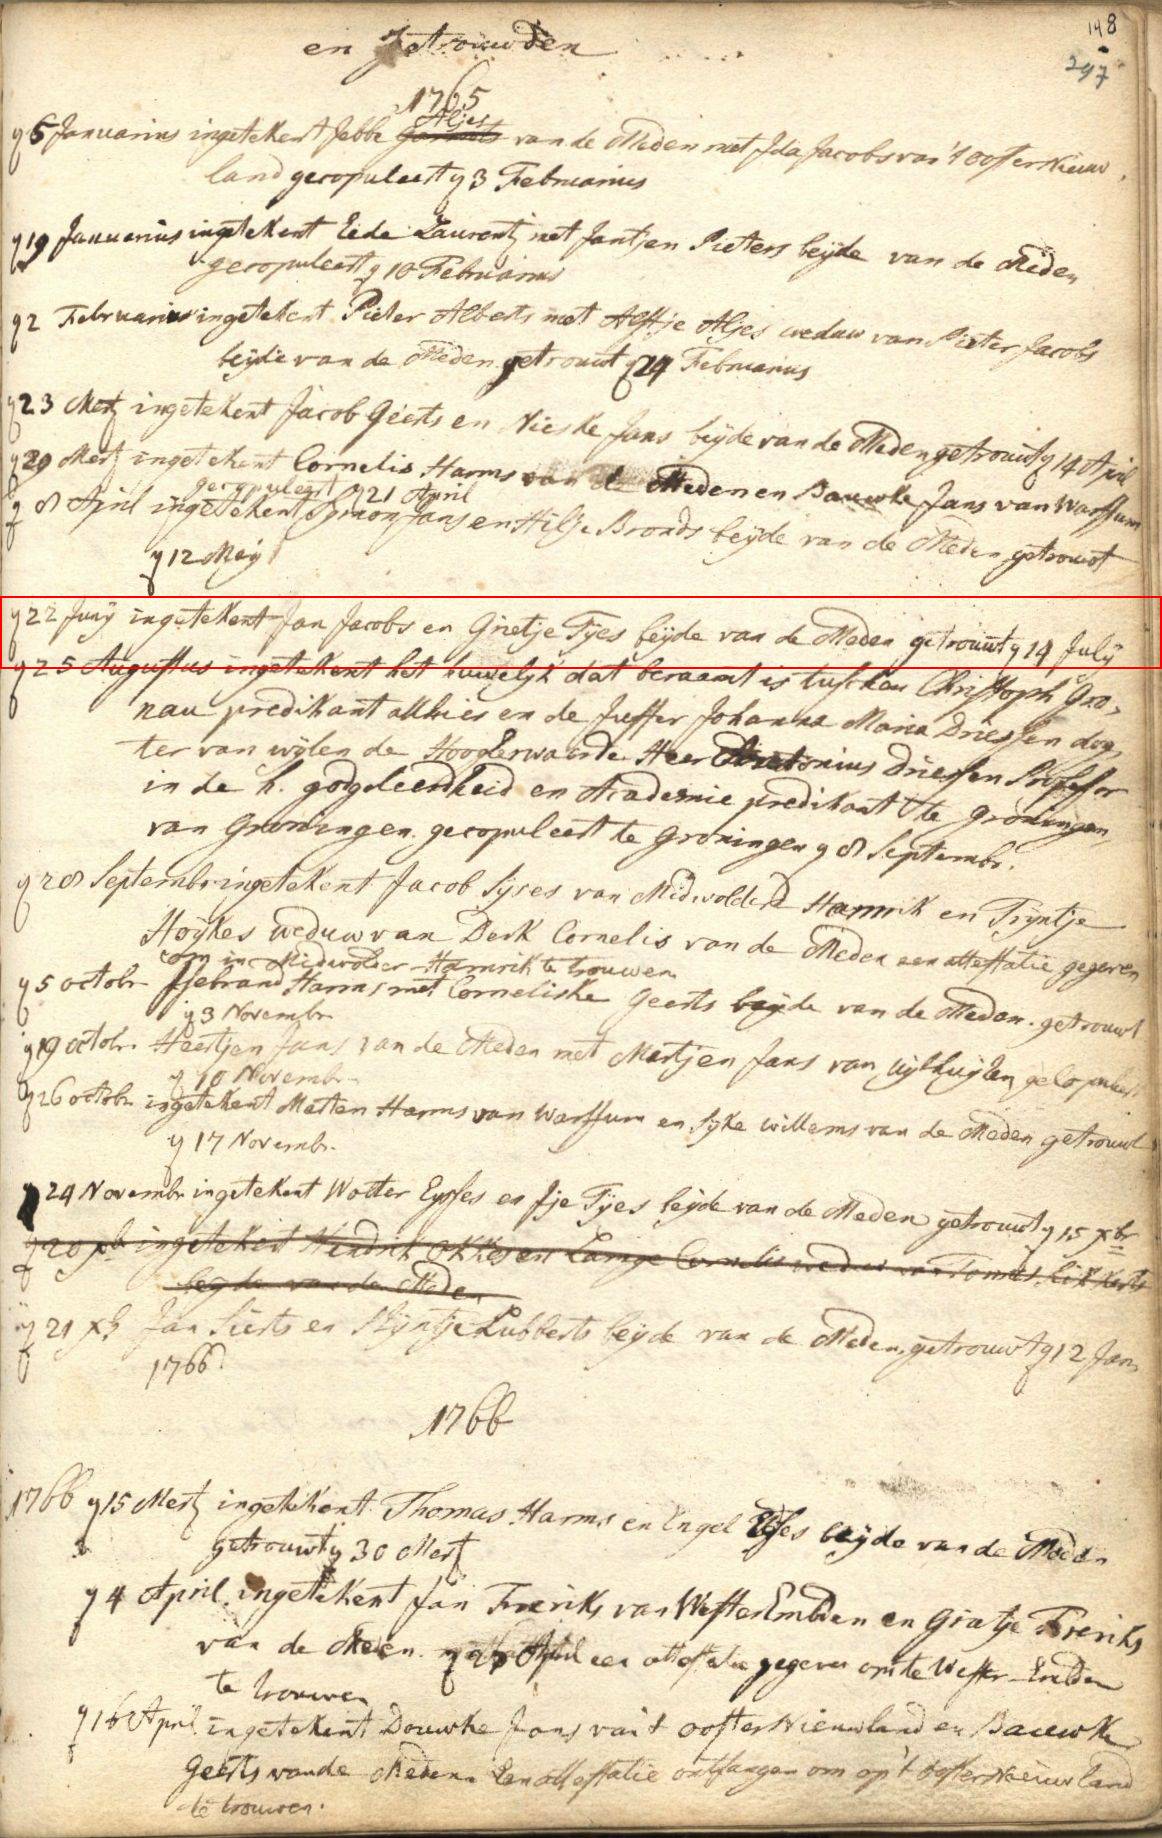 148
297
en getrouwden
1765
Aljes
y 6 Januarius ingetekent Jebbe van de Meden met Ida Jacobs van 't ooster Nieuw
land gecopuleert y 3 Februarius
y 19 Januarius ingetekent Eede Laurentz met Jantjen Pieters beijde van de Meden
gecopuleert y 10 Februarius
y 2 Februarius ingetekent Pieter Alberts met Aeltje Aljes weduw van Pieter Jacobs
beijde van de Meden getrouwt y 24 Februarius
y 23 Mertz ingetekent Jacob Geerts en Nieske Jans beijde van de Meden getrouwt y 14 April
y 29 Mertz ingetekent Cornelis Harms van de Meden en Bauwke Jans van Warffum
gecopuleert y 21 April
y 8 April ingetekent Symon Jans en Hilje Bronds beijde van de Meden getrouwt
y 12 Maij
y 22 Junij ingetekent Jan Jacobs en Grietje Tyes beijde van de Meden getrouwt y 14 Julij
y 25 Augustus ingetekent het huwelijk dat beraamt is tusschen Christoph Gro,
nau predikant alhier en de Juffer Johanna Maria Driessen dog,
ter van wijlen de Hoogeerwaerde Heer Antonius Driessen Professor
in de h. godgeleerdheid en Academie predikant te groningen,
van groningen. gecopuleert te groningen y 8 Septembr.
y 28 Septembr ingetekent Jacob Sijses van Midwolder Hamrik en Trijntje
Hoijkes weduw van Derk Cornelis van de Meden een attestatie gegeven
om in Midwolder Hamrik te trouwen
y 5 octobr Jsebrand Harms met Corneliske Geerts beijde van de Meden. getrouwt
y 3 Novembr
y 19 octobr. Heertjen Jans van de Meden met Martjen Jans van uijthuijsen gecopuleert
y 10 Novembr
y 26 octobr ingetekent Merten Harms van Warffum en Syke willems van de Meden getrouwt
y 17 Novembr.
y 24 Novembr ingetekent Wolter Eysses en Jje Tyes beijde van de Meden getrouwt y 15 xbr
y 20 xb ingetekent Hendrik Okkes en Lamge Cornelis wed van Tomas
beijde van de Meden
y 21 xb Jan Sierts en Stijntje Lubberts beijde van de Meden, getrouwt y 12 Jan
1766
1766
1766 y 15 Mertz ingetekent Thomas Harms en Engel beijde van de Meden
getrouwt y 30 Mertz
y 4 April ingetekent Jan Freriks van Wester Embden en Grietje Freriks
van de Meden. April een attestatie gegeven om te Wester-Emden
te trouwen
y 16 April ingetekent Douwke Jans van 't ooster Nieuwland en Bauwke
Geerts van de Meden. Een attestatie ontfangen om op 't ooster Nieuwland
te trouwen.